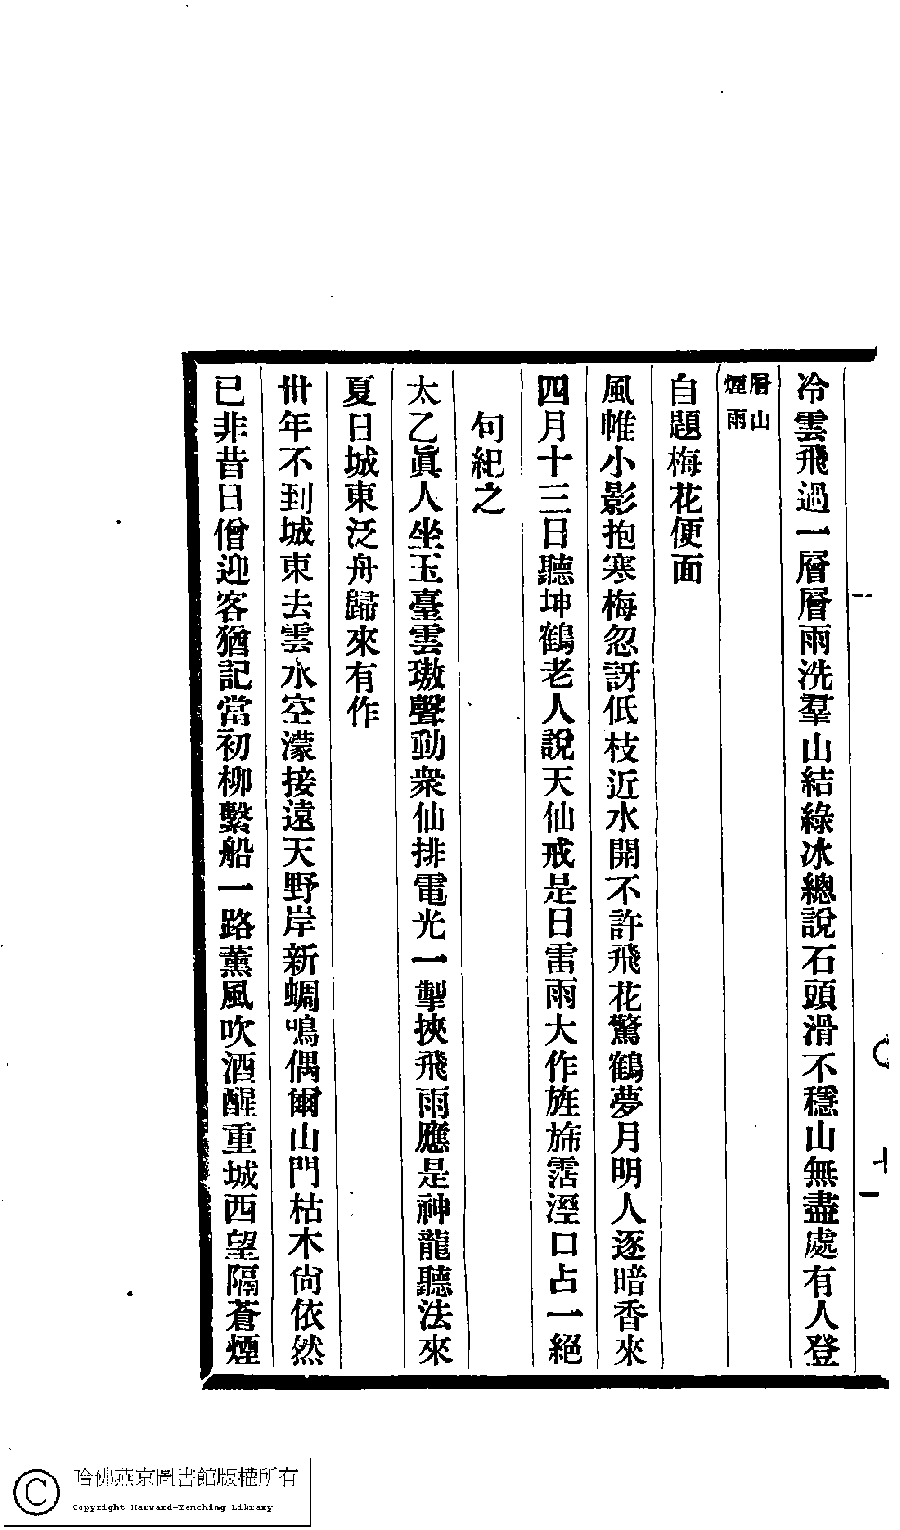 冷雲飛過一層層雨洗羣山結綠冰總說石頭滑不穩山無盡處有人登
層山
煙雨
自題梅花便面
風帷小影抱寒梅忽訝低枝近水開不許飛花驚鶴夢月明人逐暗香來
四月十三日聽坤鶴老人說天仙戒是日雷雨大作旌旆霑溼口占一絕
句紀之
太乙眞人坐玉臺雲璈聲動衆仙排電光一掣挾飛雨應是神龍聽法來
夏日城東泛舟歸來有作
卅年不到城東去雲水空濛接遠天野岸新蜩鳴偶爾山門枯木尙依然
已非昔日僧迎客猶記當初柳繫船一路薰風吹酒醒重城西望隔蒼煙
哈佛燕京圖書館版權所有
Copyright Harvard-Yenching Library